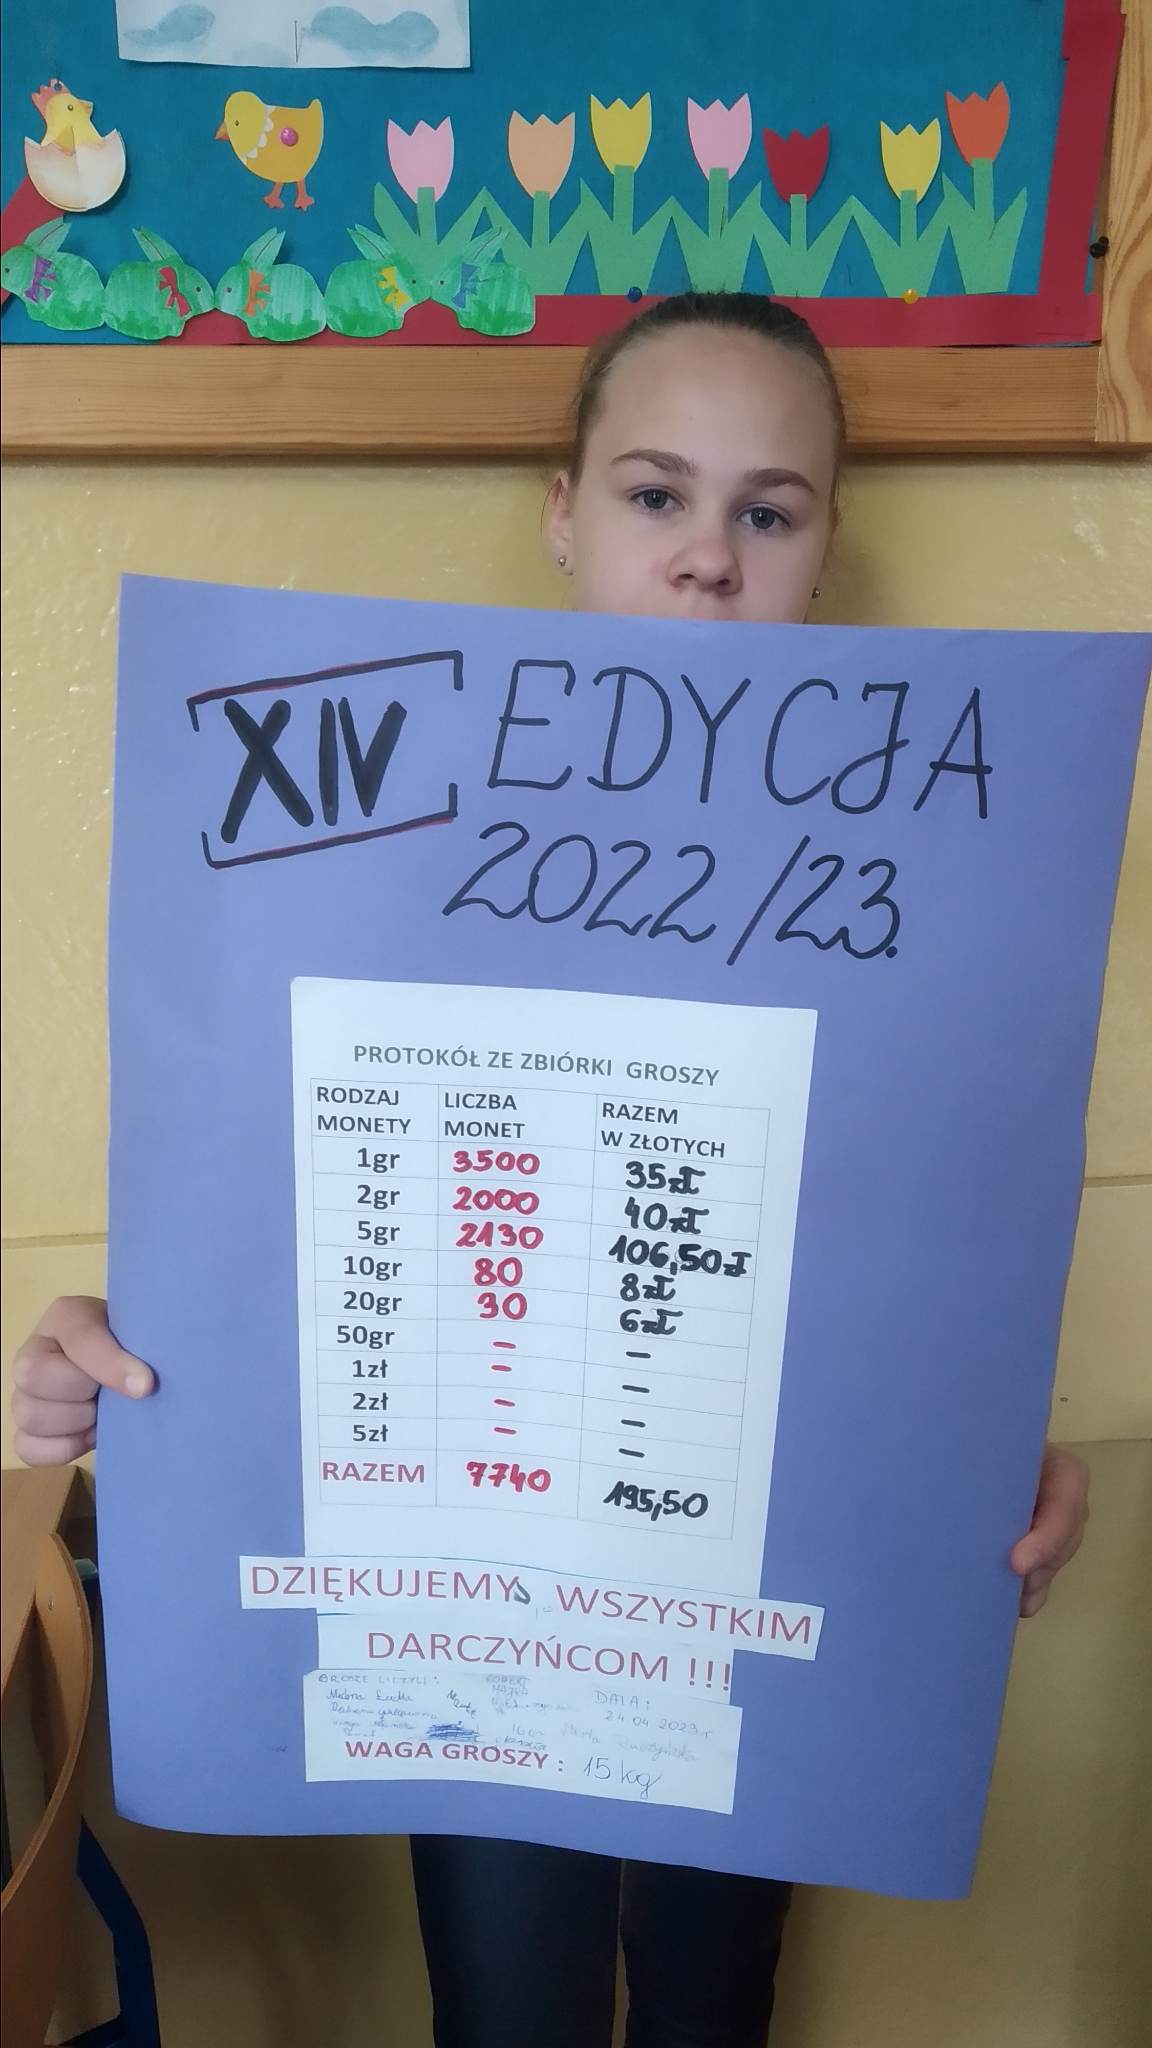 XIV EDYCJA
2022/23.
PROTOKÓŁ ZE ZBIÓRKI GROSZY
RODZAJ MONETY LICZBA MONET RAZEM W ZŁOTYCH
1gr 3500 35zł
2gr 2000 40zł
5gr 2130 106,50zł
10gr 80 8zł
20gr 30 6zł
50gr – –
1zł – –
2zł – –
5zł – –
RAZEM 7740 195,50
DZIĘKUJEMY WSZYSTKIM
DARCZYŃCOM !!!
GROSZE LICZYLI:
DATA:
24 04 2023 r
WAGA GROSZY: 15 kg